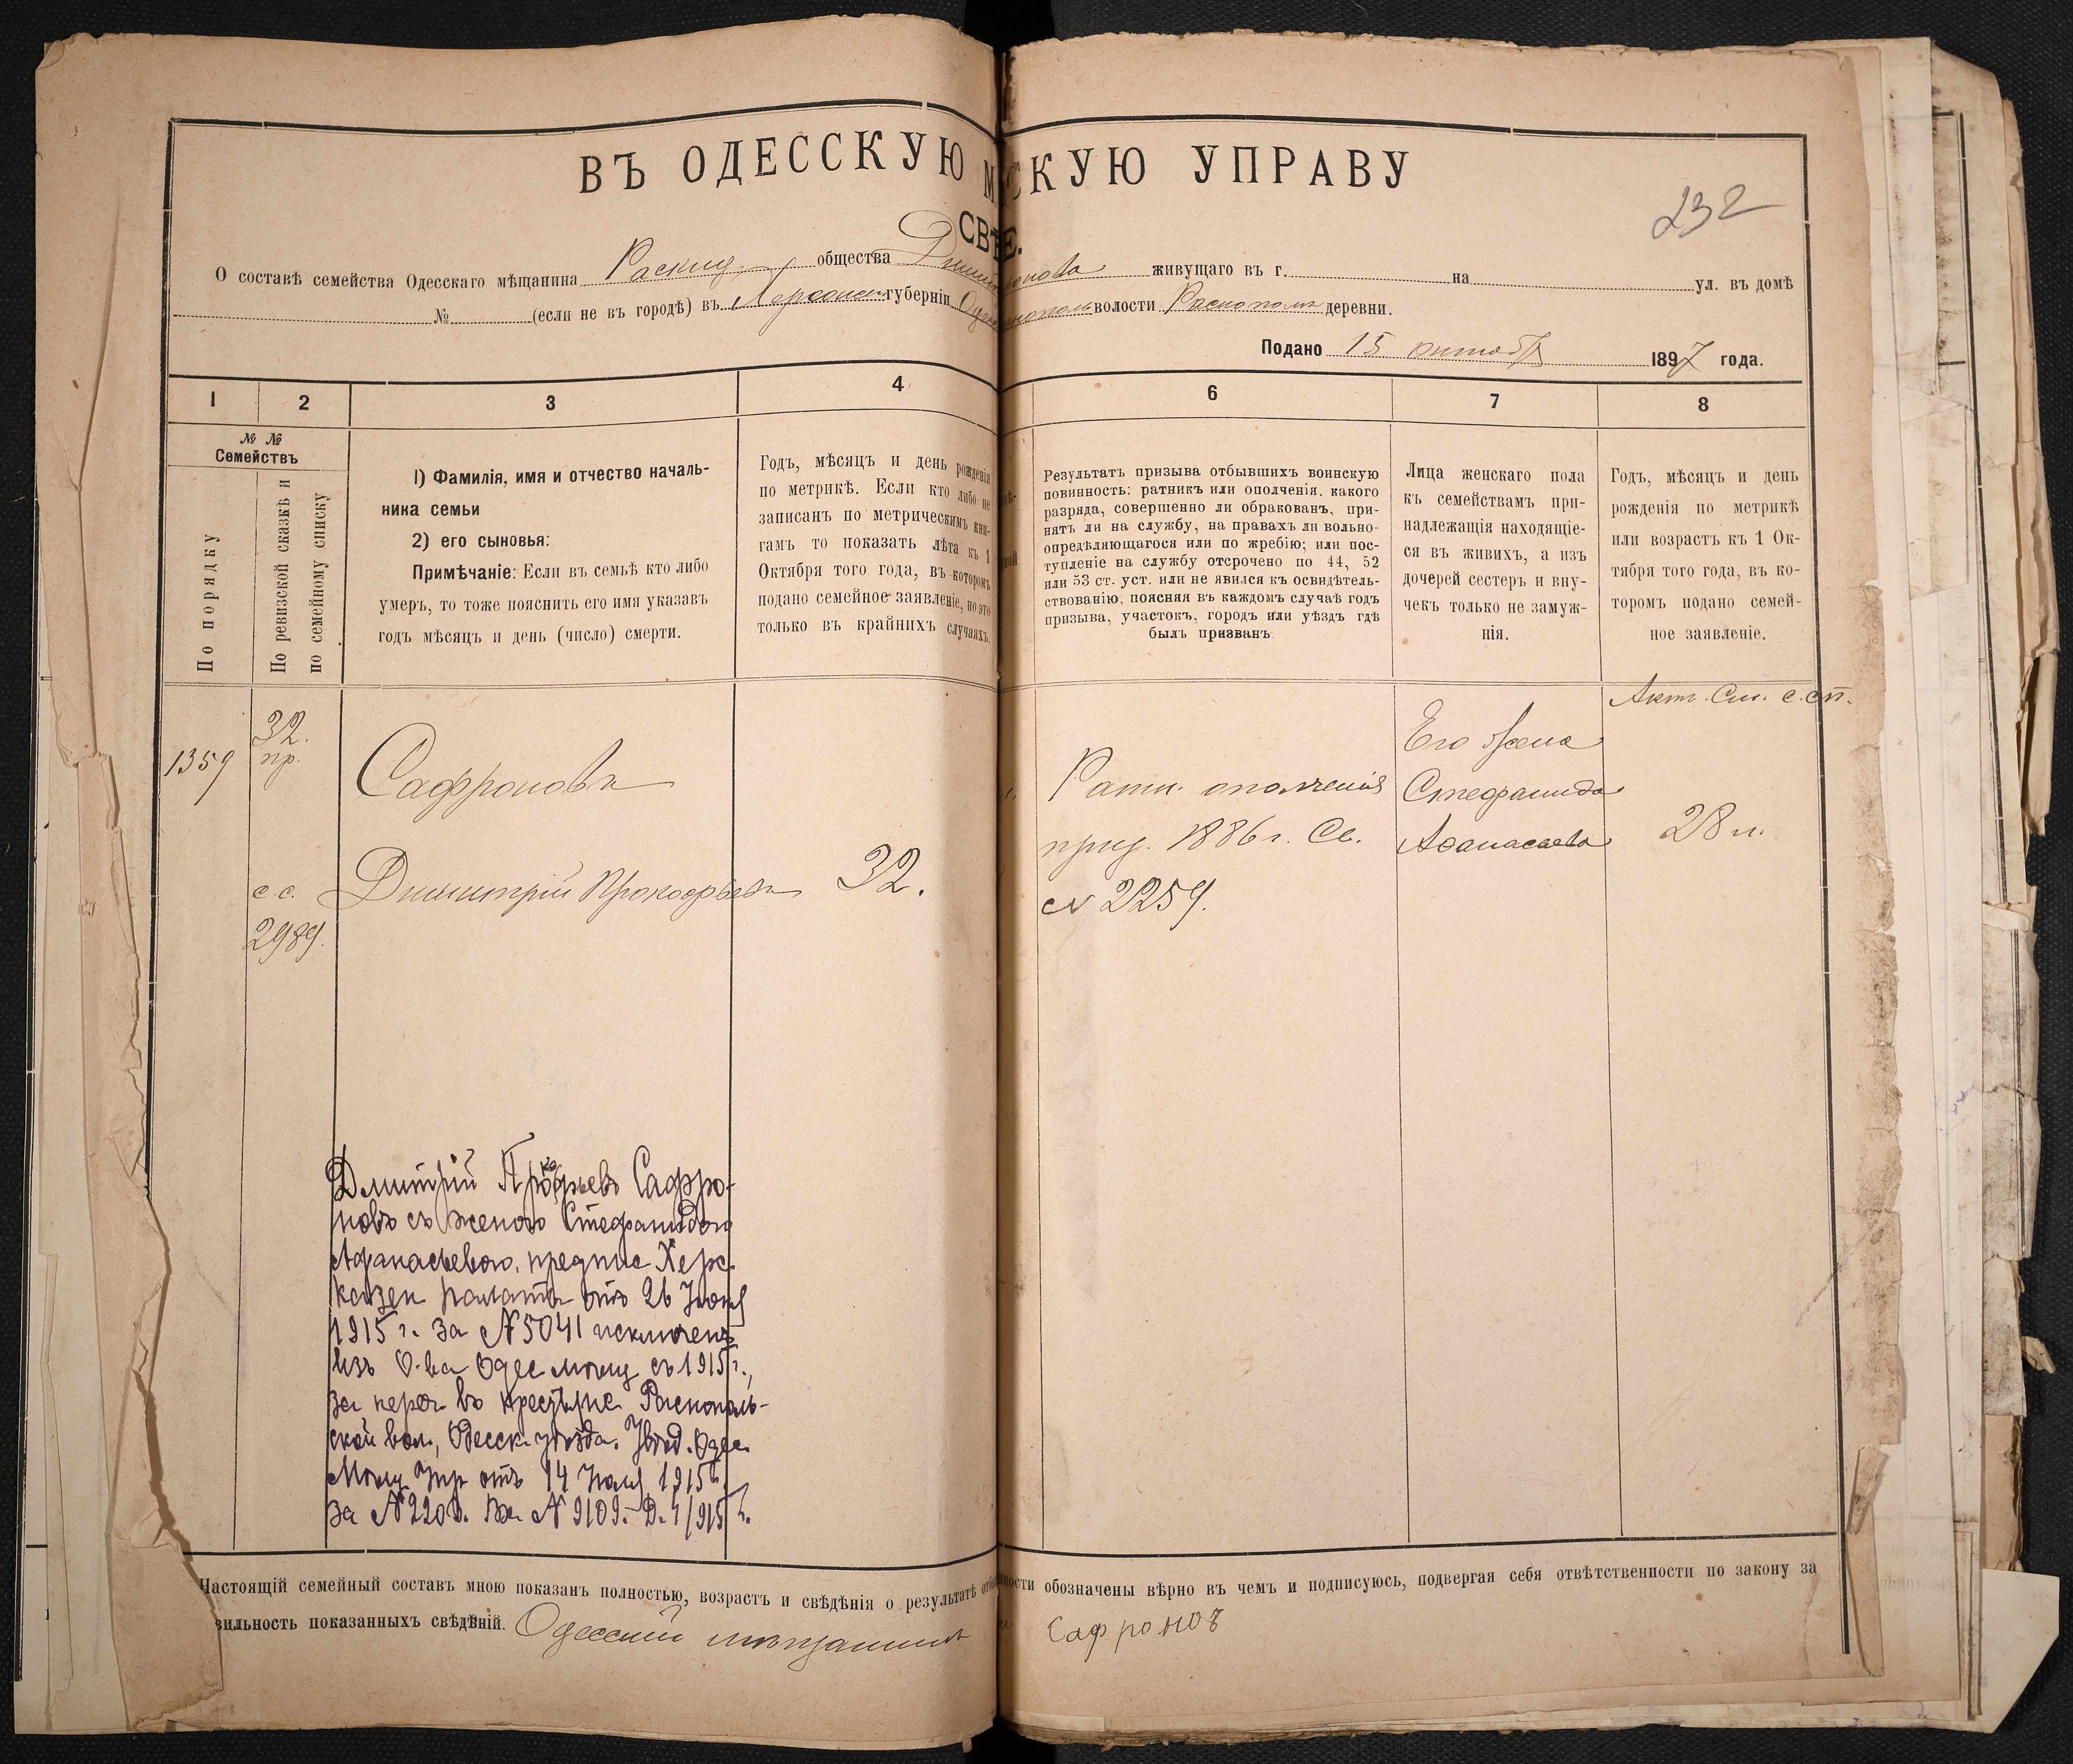 ВЪ ОДЕССКУЮ М СКУЮ УПРАВУ
232
СВѢ Е.
О составѣ семейства Одесскаго мѣщанина общества живущаго въ г. на ул. въ домѣ
№ (если не въ городѣ) въ Херсонск губерніи Одес волости Раснополь деревни.
Подано 15 октября 1897 года.
1 2 3 4 6 7 8
№ №
Семействъ
По порядку
По ревизской сказкѣ и
по семейному списку
1) Фамилія, имя и отчество началь-
ника семьи
2) его сыновья:
Примѣчаніе: Если въ семьѣ кто либо
умеръ, то тоже пояснить его имя указавъ
годъ мѣсяцъ и день (число) смерти.
Годъ, мѣсяцъ и день рожденія
по метрикѣ. Если кто либо не
записанъ по метрическимъ кни-
гамъ то показать лѣта къ 1
Октября того года, въ которомъ
подано семейное заявленіе, но это
только въ крайнихъ случаяхъ.
Результатъ призыва отбывшихъ воинскую
повинность: ратникъ или ополченія. какого
разряда, совершенно ли обракованъ, при-
нятъ ли на службу, на правахъ ли вольно-
опредѣляющагося или по жребію; или пос-
тупленіе на службу отсрочено по 44, 52
или 53 ст. уст. или не явился къ освидѣтель-
ствованію, поясняя въ каждомъ случаѣ годъ
призыва, участокъ, городъ или уѣздъ гдѣ
былъ призванъ
Лица женскаго пола
къ семействамъ при-
надлежащія находящіе-
ся въ живихъ, а изъ
дочерей сестеръ и вну-
чекъ только не замуж-
нія.
Годъ, мѣсяцъ и день
рожденія по метрикѣ
или возрастъ къ 1 Ок-
тября того года, въ ко-
торомъ подано семей-
ное заявленіе.
1359
32.
пр.
с с.
2989.
Сафроновъ
Димитрій Прокофьевъ
32.
Ратн. ополченія
приз. 1886 г. Св.
№ 2259.
Его жена
Стефанида
Аѳанасьева
28 л.
Дмитрій Прокофьевъ Сафро-
новъ съ женою Стефанидою
Афанасьевою, предпис Херс.
казен палаты отъ 26 Іюня
1915 г. за № 5041 исключенъ
изъ О-ва Одес мѣщ съ 1915 г.,
за переч въ крестьяне Раснополь-
ской вол., Одесск. уѣзда. Увѣд. Одес.
Мѣщ Упр отъ 14 Іюля 1915 г.
за № 2206. Вх. № 9109. Д. 1/915 г.
Настоящій семейный составъ мною показанъ полностью, возрастъ и свѣдѣнія о результатѣ отб ности обозначены вѣрно въ чемъ и подписуюсь, подвергая себя отвѣтственности по закону за
вильность показанныхъ свѣдѣній. Одесскій мѣщанинъ Сафроновъ